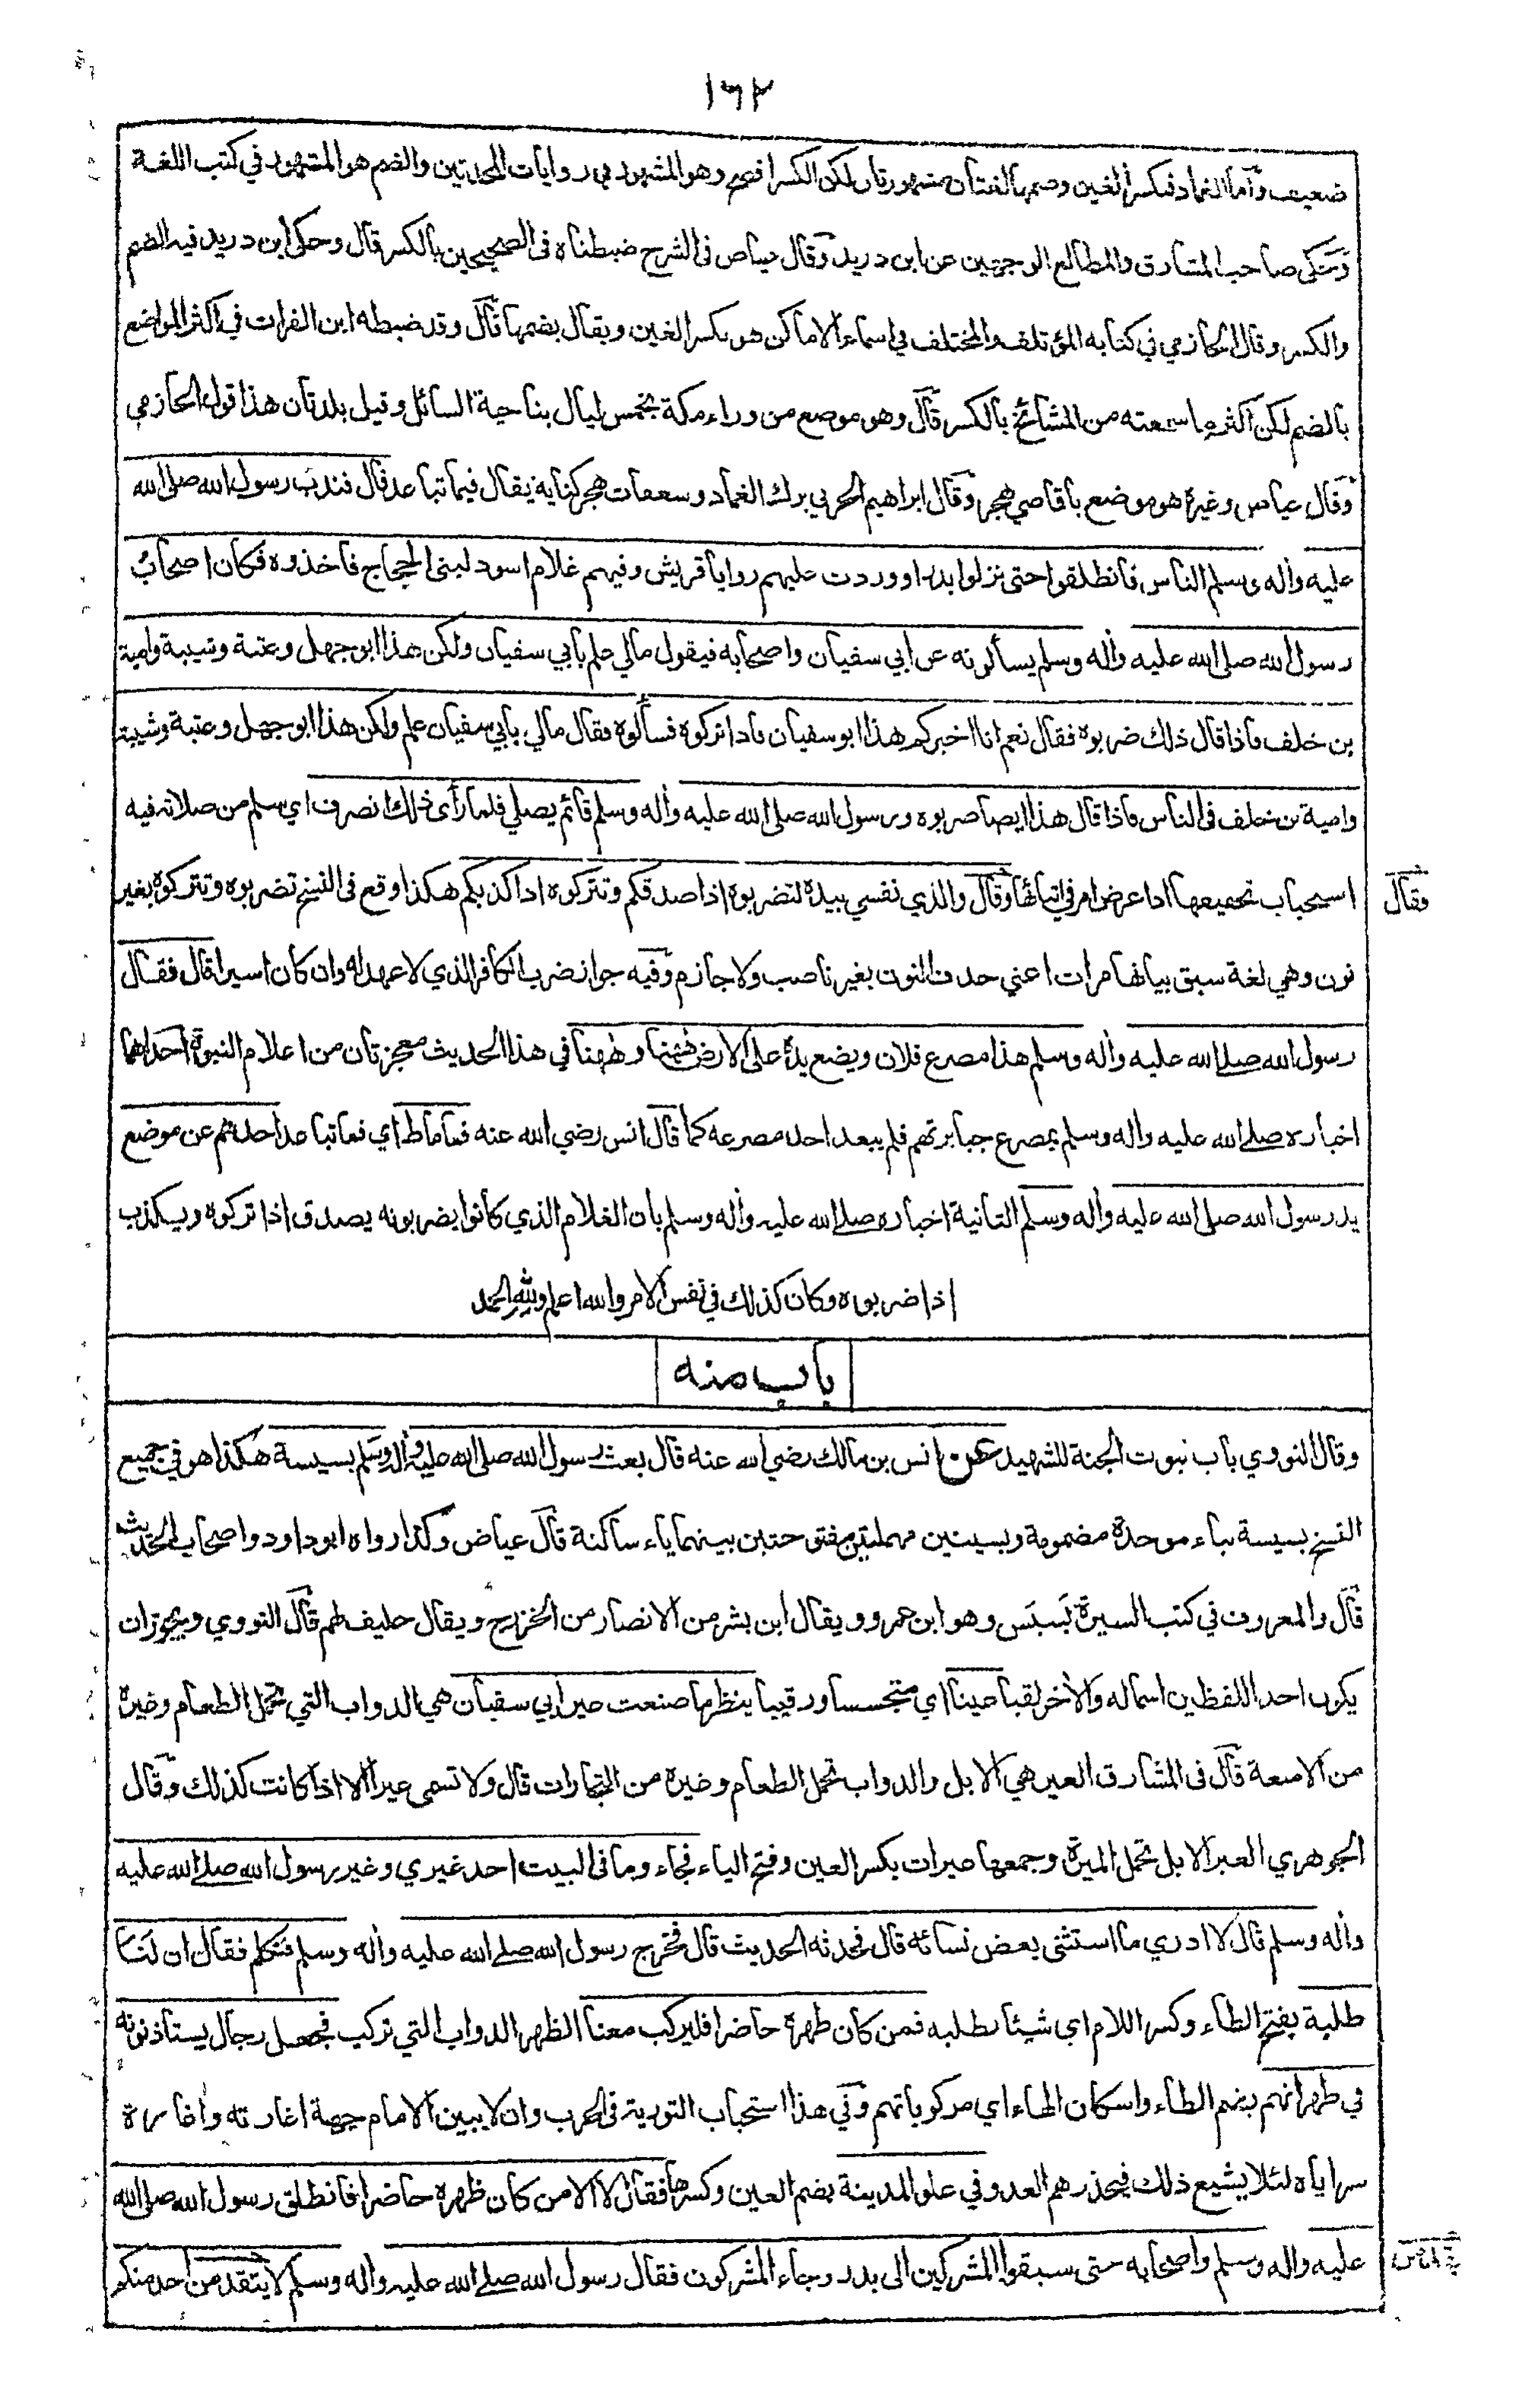 ١٦٢
ضعيف وأما الغماد فبكسر الغين وضمها لغتان مشهورتان لكن الكسر افصح وهو المشهور في روايات المحدثين والضم هو المشهور في كتب اللغة
وحكى صاحب المشارق والمطالع الوجهين عن ابن دريد وقال عياض في الشرح ضبطناه في الصحيحين بالكسر قال وحكى ابن دريد فيه الضم
والكسر وقال الحازمي في كتابه المؤتلف والمختلف في اسماء الاماكن هو بكسر الغين ويقال بضمها قال وقد ضبطه ابن الفرات في اكثر المواضع
بالضم لكن اكثر ما سمعته من المشائخ بالكسر قال وهو موضع من وراء مكة بخمس ليال بناحية السائل وقيل بلدتان هذا قول الحازمي
وقال عياض وغيره هو موضع باقاصي هجر وقال ابراهيم الحربي برك الغماد وسعفات هجر كناية يقال فيما تباعد قال فندب رسول الله صلى الله
عليه وأله وسلم الناس فانطلقوا حتى نزلوا بدرا ووردت عليهم روايا قريش وفيهم غلام اسود لبنى الحجاج فاخذوه فكان اصحاب
رسول الله صلى الله عليه وأله وسلم يسألونه عن ابي سفيان واصحابه فيقول مالي علم بابي سفيان ولكن هذا ابو جهل وعتبة وشيبة وامية
بن خلف فاذا قال ذلك ضربوه فقال نعم انا اخبركم هذا ابو سفيان فاذا تركوه فسألوه فقال مالي بابي سفيان علم ولكن هذا ابو جهل وعتبة وشيبة
وامية بن خلف في الناس فاذا قال هذا ايضا ضربوه ورسول الله صلى الله عليه وأله وسلم قائم يصلي فلما رأى ذلك انصرف اي سلم من صلاته فيه
استحباب تخفيفها اذا عرض امر في اثنائها وقال والذي نفسي بيده لتضربوه اذا صدقكم وتتركوه اذا كذبكم هكذا وقع في النسخ تضربوه وتتركوه بغير
فقال
نون وهي لغة سبق بيانها مرات اعني حذف النون بغير ناصب ولا جازم وفيه جواز ضرب الكافر الذي لا عهد له وان كان اسيرا قال فقال
رسول الله صلى الله عليه وأله وسلم هذا مصرع فلان ويضع يده على الارض ههنا وههنا في هذا الحديث معجزتان من اعلام النبوة احداهما
اخباره صلى الله عليه واله وسلم بمصرع جبابرتهم فلم يبعد احد مصرعه كما قال انس رضي الله عنه فما ماط اي فما تباعد احدهم عن موضع
يد رسول الله صلى الله عليه وأله وسلم الثانية اخباره صلى الله عليه وأله وسلم بان الغلام الذي كانوا يضربونه يصدق اذا تركوه ويكذب
اذا ضربوه وكان كذلك في نفس الامر والله اعلم ولله الحمد
باب منه
وقال النووي باب ثبوت الجنة للشهيد عن انس بن مالك رضي الله عنه قال بعث رسول الله صلى الله عليه وأله وسلم بسيسة هكذا هو في جميع
النسخ بسيسة بباء موحدة مضمومة وبسينين مهملتين مفتوحتين بينهما ياء ساكنة قال عياض وكذا رواه ابو داود واصحاب الحديث
قال والمعروف في كتب السيرة بَسبَس وهو ابن عمرو ويقال ابن بشر من الانصار من الخزرج ويقال حليف لهم قال النووي ويجوز ان
يكون احد اللفظين اسما له والأخر لقبا عينا اي متجسسا ورقيبا ينظر ما صنعت عير ابي سفيان هي الدواب التي تحمل الطعام وغيره
من الامتعة قال في المشارق العير هي الابل والدواب تحمل الطعام وغيره من التجارات قال ولا تسمى عيرا الا اذا كانت كذلك وقال
الجوهري العير الابل تحمل الميرة وجمعها عيرات بكسر العين وفتح الياء فجاء وما في البيت احد غيري وغير رسول الله صلى الله عليه
وأله وسلم قال لا ادري ما استثنى بعض نسائه قال فحدثه الحديث قال فخرج رسول الله صلى الله عليه وأله وسلم فتكلم فقال ان لنا
طلبة بفتح الطاء وكسر اللام اي شيئا نطلبه فمن كان ظهره حاضرا فليركب معنا الظهر الدواب التي تركب فجعل رجال يستأذنونه
في ظهرانهم بضم الظاء واسكان الهاء اي مركوباتهم وفي هذا استحباب التورية في الحرب وان لا يبين الامام جهة اغارته واغارة
سراياه لئلا يشيع ذلك فيحذرهم العدو في علو المدينة بضم العين وكسرها فقال لا الا من كان ظهره حاضرا فانطلق رسول الله صلى الله
عليه واله وسلم واصحابه حتى سبقوا المشركين الى بدر وجاء المشركون فقال رسول الله صلى الله عليه واله وسلم لا يتقدمن احد منكم